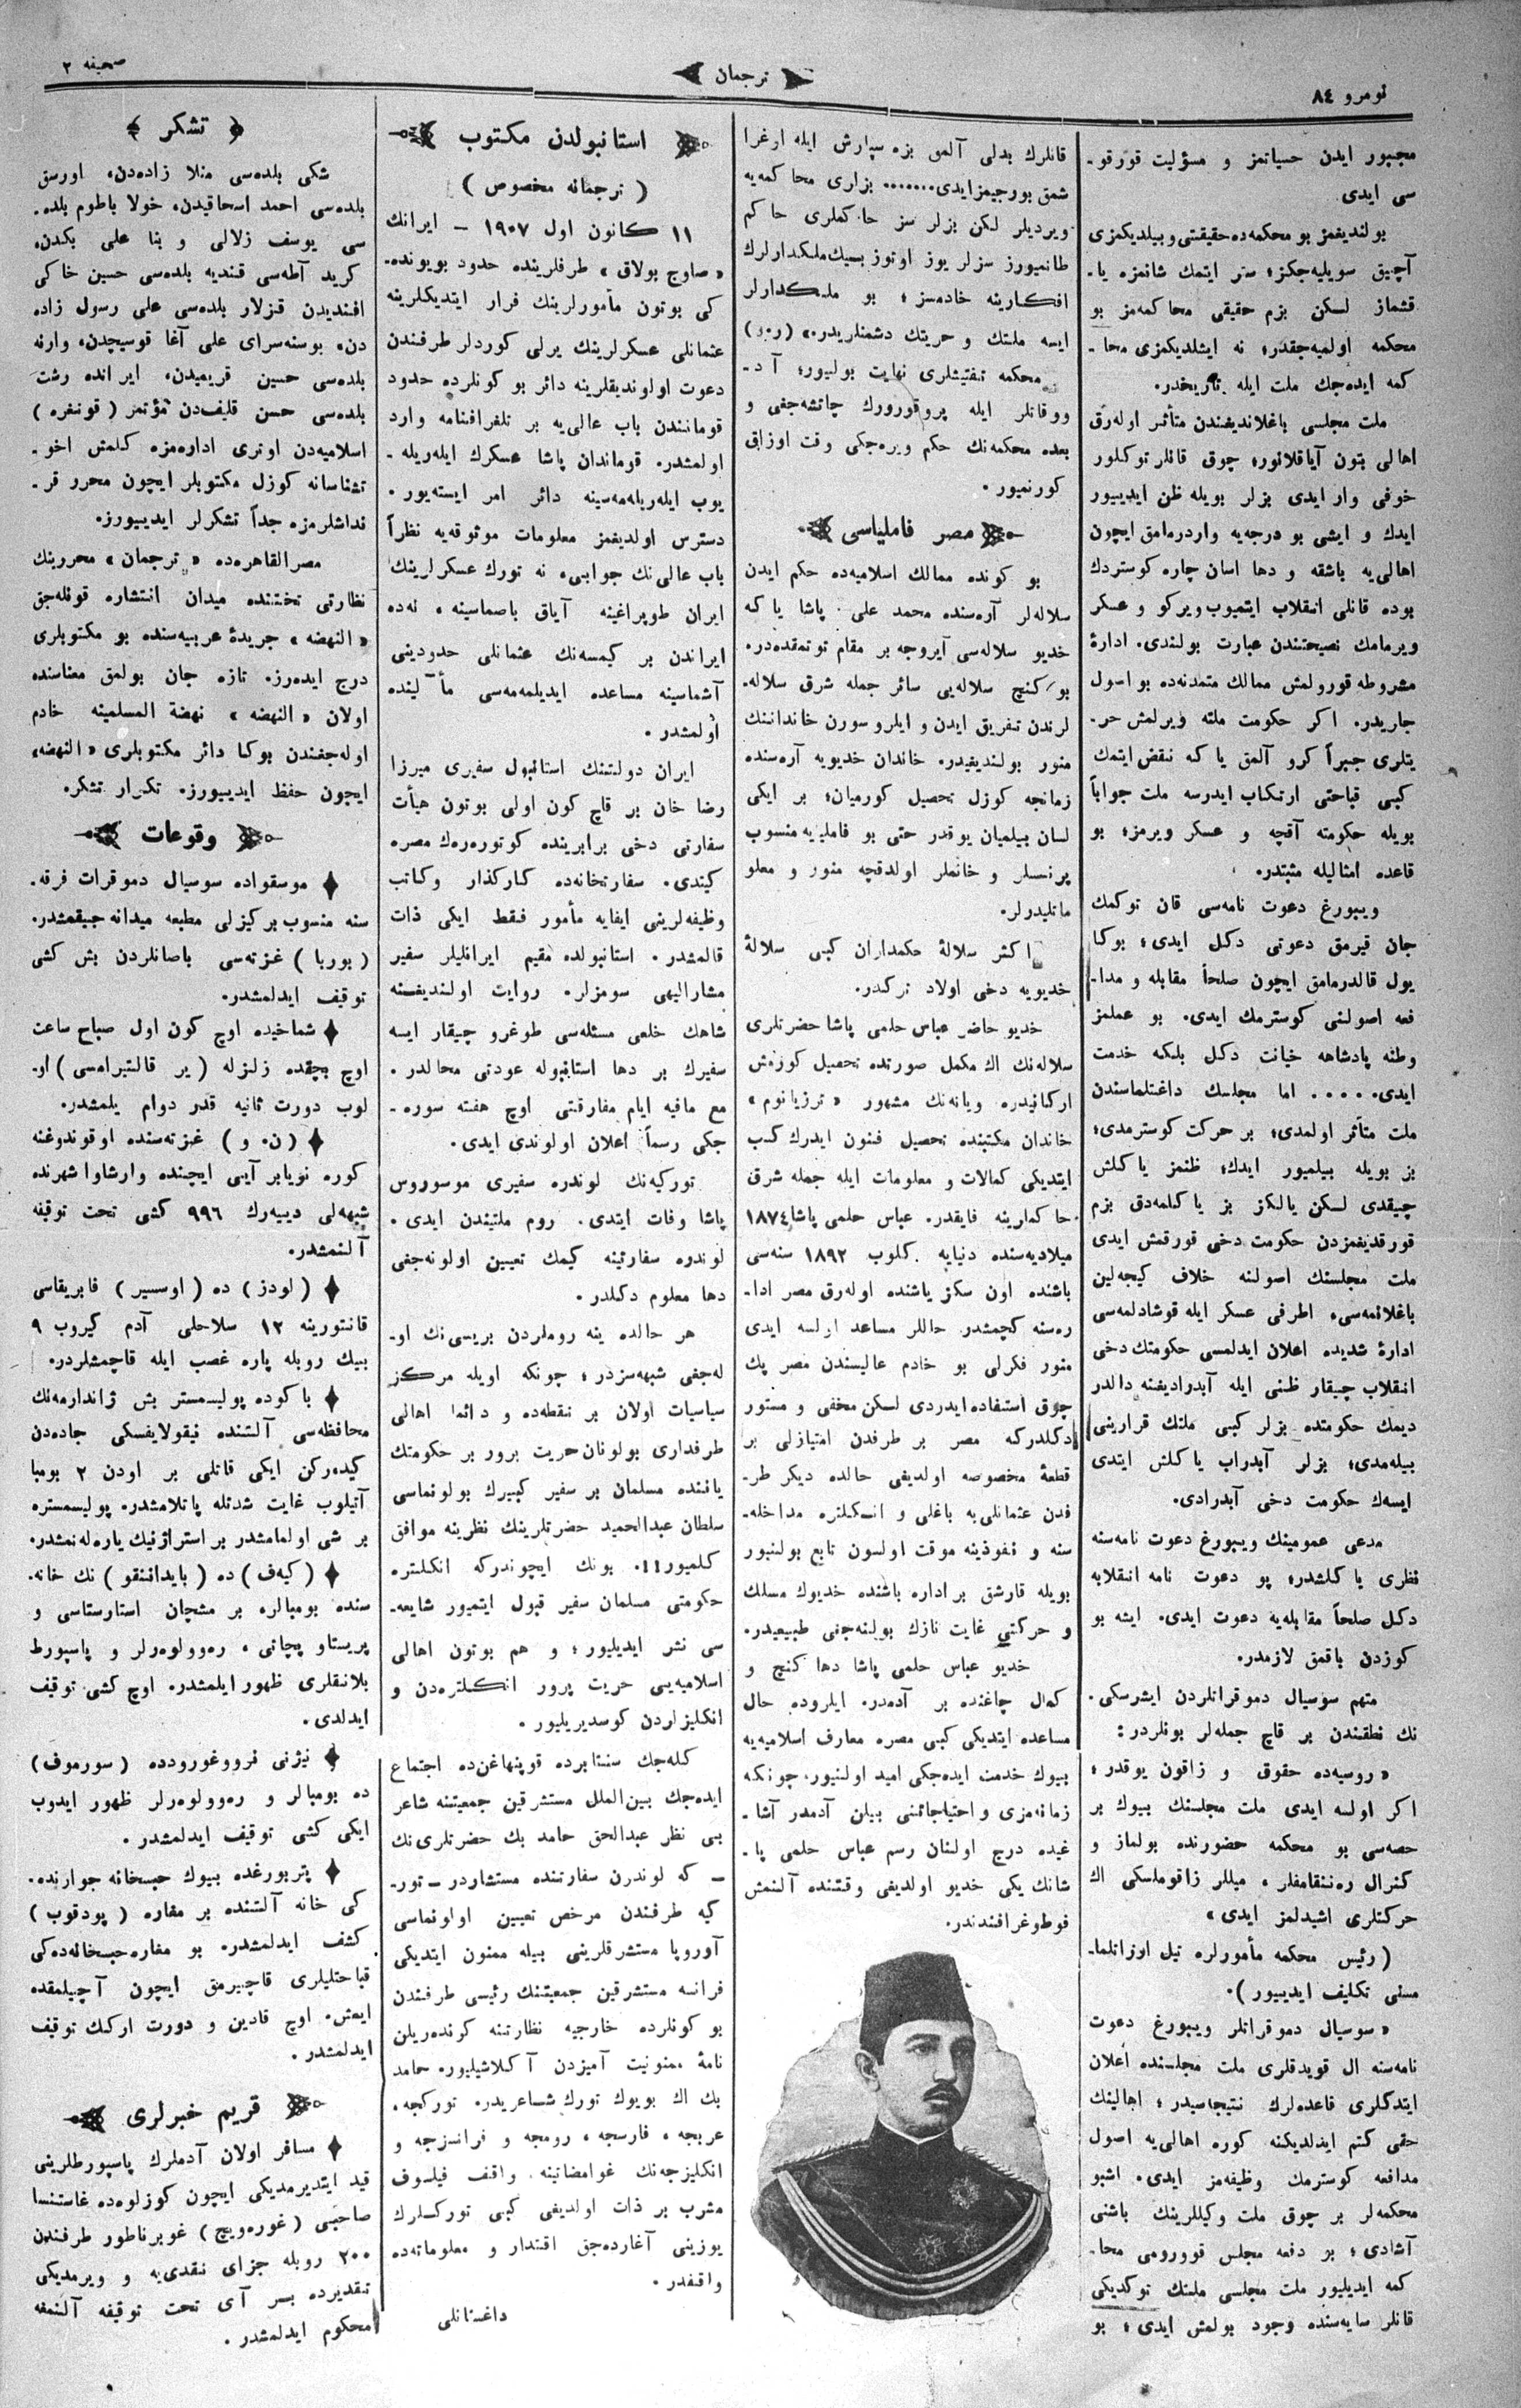 نومرو ٨٤
ترجمان
صحیفه ٢
مجبور ایدن حسیاتمز و مسؤلیت قورقو-
سی ایدی
بولندیغمز بو محکمه‌ده حقیقتی و بیلدیکمزی
آچیق سویلیه‌جکز؛ ستر ایتمك شانمزه یا-
قشماز لسکن بزم حقیقی محاکمه‌مز بو
محکمه اولمیه‌جقدر؛ نه ایشلدیکمزی محا-
کمه ایده‌جك ملت ایله تاریخدر.
ملت مجلسی باغلاندیغندن متأثر اوله‌رق
اهالی بتون آیاقلانور، چوق قانلر توکلور
خوفی وار ایدی بزلر بویله ظن ایدییور
ایدك و ایشی بو درجه‌یه واردرمامق ایچون
اهالی‌یه باشقه و دها اسان چاره کوستردك
بوده قانلی انقلاب ایتمیوب ویرکو و عسکر
ویرمامك نصیحتندن عبارت بولندی. ادارهٔ
مشروطه قورولمش ممالك متمدنه‌ده بو اسول
جاریدر. اکر حکومت ملته ویرلمش حر-
یتلری جبراً کرو آلمق یا که نقض ایتمك
کبی قباحتی ارتکاب ایدرسه ملت جواباً
بویله حکومته آقچه و عسکر ویرمز؛ بو
قاعده امثالیله مثبتدر.
ویبورغ دعوت نامه‌سی قان توکمك
جان قیرمق دعوتی دکل ایدی؛ بوکا
یول قالدرمامق ایچون صلحاً مقابله و مدا-
فعه اصولنی کوسترمك ایدی. بو عملمز
وطنه پادشاهه خیانت دکل بلکه خدمت
ایدی..... اما مجلسك داغتلماسندن
ملت متأثر اولمدی؛ بر حرکت کوسترمدی؛
بز بویله بیلمیور ایدك؛ ظنمز یاکلش
چیقدی لسکن یالکز بز یاکلمه‌دق بزم
قورقدیغمزدن حکومت دخی قورقمش ایدی
ملت مجلسنك اصولنه خلاف کیجه‌لین
باغلانمه‌سی، اطرفی عسکر ایله قوشادلمه‌سی
ادارهٔ شدیده اعلان ایدلمسی حکومتك دخی
انقلاب چیقار ظنی ایله آیدرادیغنه دالدر
دیمك حکومتده بزلر کبی ملتك قرارینی
بیله‌مدی؛ بزلر آیدراب یاکلش ایتدی
ایسه‌ك حکومت دخی آیدرادی.
مدعی عمومینك ویبورغ دعوت نامه‌سنه
نظری یاکلشدر؛ بو دعوت نامه انقلابه
دکل صلحاً مقابله‌یه دعوت ایدی. ایشه بو
کوزدن باقمق لازمدر.
متهم سوسیال دموقراتلردن ایشرسکی-
نك نطقندن بر قاچ جمله‌لر بونلردر:
«روسیه‌ده حقوق و زاقون یوقدر؛
اکر اولسه ایدی ملت مجلسنك بیوك بر
حصه‌سی بو محکمه حضورنده بولماز و
کنرال ره‌ننقامفلر، میللر زاقوملسکی اك
حرکتلری اشیدلمز ایدی»
(رئیس محکمه مأمورلره تیل اوزاتلما-
مسنی تکلیف ایدییور).
«سوسیال دموقراتلر ویبورغ دعوت
نامه‌سنه ال قویدقلری ملت مجلسنده اعلان
ایتدکلری قاعده‌لرك نتیجه‌سیدر؛ اهالینك
حقی کتم ایدلدیکنه کوره اهالی‌یه اصول
مدافعه کوسترمك وظیفه‌مز ایدی. اشبو
محکمه‌لر بر چوق ملت وکیللرینك باشنی
آشادی؛ بر دفعه مجلس قوورومی محا-
کمه ایدیلیور ملت مجلسی ملتك توکدیکی
قانلر سایه‌سنده وجود بولمش ایدی؛ بو
قانلرك بدلی آلمق بزه سپارش ایله اوغرا
شمق بورجیمز ایدی....... بزاری محاکمه‌یه
ویردیلر لکن بزلر سز حاکملری حاکم
طانمیورز سزلر یوز اوتوز بیك ملکدارلرك
افکارینه خادمسز؛ بو ملکدارلر
ایسه ملتك و حریتك دشمنلریدر.» (ره‌و)
محکمه تفتیشلری نهایت بولیور؛ آد-
ووقاتلر ایله پروقورورك چاتشه‌جغی و
بعده محکمه‌نك حکم ویره‌جکی وقت اوزاق
کورنمیور.
مصر فاملیاسی
بو کونده ممالك اسلامیه‌ده حکم ایدن
سلاله‌لر آره‌سنده محمد علی پاشا یا که
خدیو سلاله‌سی آیروجه بر مقام توتمقده‌در.
بو کنج سلاله‌یی سائر جمله شرق سلاله-
لرندن تفریق ایدن و ایلرو سورن خاندانك
منور بولندیغیدر. خاندان خدیویه آره‌سنده
زمانجه کوزل تحصیل کورمیان؛ بر ایکی
لسان بیلمیان یوقدر حتی بو فاملیه‌یه منسوب
پرنسلر و خانملر اولدقچه منور و معلو
ماتلیدرلر.
اکثر سلالهٔ حکمداران کبی سلالهٔ
خدیویه دخی اولاد ترکدر.
خدیو حاضر عباس حلمی پاشا حضرتلری
سلاله‌نك اك مکمل صورتده تحصیل کورمش
ارکانیدر. ویانه‌نك مشهور «ترزیانوم»
خاندان مکتبنده تحصیل فنون ایدرك کسب
ایتدیکی کمالات و معلومات ایله جمله شرق
حاکمارینه فایقدر. عباس حلمی پاشا ١٨٧٤
میلادیه‌سنده دنیایه کلوب ١٨٩٢ سنه‌سی
باشنده اون سکز یاشنده اوله‌رق مصر ادا-
ره‌سنه کچمشدر. حاللر مساعد اولسه ایدی
منور فکرلی بو خادم عالیسندن مصر پك
چوق استفاده ایدردی لسکن مخفی و مستور
دکلدرکه مصر بر طرفدن امتیازلی بر
قطعهٔ مخصوصه اولدیغی حالده دیکر طر-
فدن عثمانلی‌یه باغلی و انسکلتره مداخله-
سنه و نفوذینه موقت اولسون تابع بولنیور
بویله قارشق بر اداره باشنده خدیوك مسلك
و حرکتی غایت نازك بولنه‌جغی طبیعیدر.
خدیو عباس حلمی پاشا دها کنج و
کمال چاغنده بر آدمدر. ایلروده حال
مساعده ایتدیکی کبی مصره معارف اسلامیه‌یه
بیوك خدمت ایده‌جکی امید اولنیور. چونکه
زمانه‌مزی و احتیاجاتنی بیلن آدمدر. آشا-
غیده درج اولنان رسم عباس حلمی پا-
شانك یکی خدیو اولدیغی وقتنده آلنمش
فوطوغرافندندر.
استانبولدن مکتوب
(ترجمانه مخصوص)
١١ کانون اول ١٩٠٧ – ایرانك
«صاوج بولاق» طرفلرینده حدود بویونده-
کی بوتون مأمورلرینك فرار ایتدیکلرینه
عثمانلی عسکرلرینك یرلی کوردلر طرفندن
دعوت اولوندیقلرینه دائر بو کونلرده حدود
قومانندن باب عالی‌یه بر تلغرافنامه وارد
اولمشدر. قوماندان پاشا عسکرك ایله‌ریله-
یوب ایله‌ریله‌مه‌سینه دائر امر ایسته‌یور.
دسترس اولدیغمز معلومات موثوقه‌یه نظراً
باب عالی‌نك جوابی، نه تورك عسکرلرینك
ایران طوپراغینه آیاق باصماسینه، نه‌ده
ایراندن بر کیمسه‌نك عثمانلی حدودینی
آشماسینه مساعده ایدیلمه‌مه‌سی مآلینده
اولمشدر.
ایران دولتینك استانبول سفیری میرزا
رضا خان بر قاچ کون اولی بوتون هیأت
سفارتی دخی برابرینده کوتوره‌رك مصره
کیتدی. سفارتخانه‌ده کارکذار وکاتب
وظیفه‌لرینی ایفایه مأمور فقط ایکی ذات
قالمشدر. استانبولده مقیم ایرانلیلر سفیر
مشارالیهی سومزلر. روایت اولندیغنه
شاهك خلعی مسئله‌سی طوغرو چیقار ایسه
سفیرك بر دها استانبوله عودتی محالدر.
مع مافیه ایام مفارقتی اوچ هفته سوره-
جکی رسماً اعلان اولوندی ایدی.
تورکیه‌نك لوندره سفیری موسوروس
پاشا وفات ایتدی. روم ملتیندن ایدی.
لوندره سفارتینه کیمك تعیین اولونه‌جغی
دها معلوم دکلدر.
هر حالده ینه روملردن بریسی‌نك او-
له‌جغی شبهه‌سزدر؛ چونکه اویله مرکز
سیاسیات اولان بر نقطه‌ده و دائما اهالی
طرفداری بولونان حریت پرور بر حکومتك
یاننده مسلمان بر سفیر کبیرك بولونماسی
سلطان عبدالحمید حضرتلرینك نظرینه موافق
کلمیور!!. بونك ایچوندرکه انکلتره
حکومتی مسلمان سفیر قبول ایتمیور شایعه-
سی نشر ایدیلیور؛ و هم بوتون اهالی
اسلامیه‌یی حریت پرور انکلتره‌دن و
انکلیزلردن کوسدیریلیور.
کله‌جك سنتابرده قوپنهاغن‌ده اجتماع
ایده‌جك بین‌الملل مستشرقین جمعیتنه شاعر
بی نظر عبدالحق حامد بك حضرتلری‌نك
– که لوندرن سفارتنده مستشاردر – تور-
کیه طرفندن مرخص تعیین اولونماسی
آوروپا مستشرقلرینی بیله ممنون ایتدیکی
فرانسه مستشرقین جمعیتنك رئیسی طرفندن
بو کونلرده خارجیه نظارتنه کونده‌ریلن
نامهٔ ممنونیت آمیزدن آکلاشیلیور. حامد
بك اك بویوك تورك شاعریدر. تورکجه،
عربجه، فارسجه، رومجه و فرانسزجه و
انکلیزجه‌نك غوامضاتینه واقف فیلسوف
مشرب بر ذات اولدیغی کبی تورکلرك
یوزینی آغارده‌جق اقتدار و معلوماته‌ده
واقفدر.
داغستانلی
تشکر
شکی بلده‌سی منلا زاده‌دن، اورسق
بلده‌سی احمد اسحاقیدن، خولا باطوم بلده-
سی یوسف زلالی و بنا علی بکدن،
کرید آطه‌سی قندیه بلده‌سی حسین خاکی
افندیدن قزلار بلده‌سی علی رسول زاده
دن، بوسنه‌سرای علی آغا قوسیچدن، وارنه
بلده‌سی حسین قریمیدن، ایرانده رشت
بلده‌سی حسن قلیف‌دن مؤتمر (قونغره)
اسلامیه‌دن اوتری اداره‌مزه کلمش اخو-
تشناسانه کوزل مکتوبلر ایچون محرر قر-
نداشلرمزه جداً تشکرلر ایدییورز.
مصر القاهره‌ده «ترجمان» محررینك
نظارتی تختنده میدان انتشاره قونله‌جق
«النهضه» جریدهٔ عربیه‌سنده بو مکتوبلری
درج ایده‌رز. تازه جان بولمق معناسنده
اولان «النهضه» نهضة المسلمینه خادم
اوله‌جغندن بوکا دائر مکتوبلری «النهضه»
ایچون حفظ ایدییورز. تکرار تشکر.
وقوعات
موسقواده سوسیال دموقرات فرقه-
سنه منسوب بر کیزلی مطبعه میدانه چیقمشدر.
(بوربا) غزته‌سی باصانلردن بش کشی
توقیف ایدلمشدر.
شماخیده اوچ کون اول صباح ساعت
اوچ بچقده زلزله (یر قالتیرامسی) او-
لوب دورت ثانیه قدر دوام یلمشدر.
(ن. و) غزته‌سنده اوقوندوغنه
کوره نویابر آیی ایچنده وارشاوا شهرنده
شبهه‌لی دییه‌رك ٩٩٦ کشی تحت توقیفه
آلنمشدر.
(لودز) ده (اوسسیر) فابریقاسی
قانتورینه ١٢ سلاحلی آدم کیروب ٩
بیك روبله پاره غصب ایله قاچمشلردر.
باکوده پولیسمستر بش ژاندارمه‌نك
محافظه‌سی آلتنده نیقولایفسکی جاده‌دن
کیده‌رکن ایکی قاتلی بر اودن ٢ بومبا
آتیلوب غایت شدتله پاتلامشدر. پولیسمستره
بر شی اولمامشدر بر استراژنیك یاره‌له‌نمشدر.
(کیه‌ف) ده (بایداننقو) نك خانه-
سنده بومبالره بر مشچان استارستاسی و
پریستاو پچاتی، ره‌وولوه‌رلر و پاسپورط
بلانقلری ظهور ایلمشدر. اوچ کشی توقیف
ایدلدی.
نیژنی نرووغورودده (سورموف)
ده بومبالر و ره‌وولوه‌رلر ظهور ایدوب
ایکی کشی توقیف ایدلمشدر.
پتربورغده بیوك حبسخانه جوارنده-
کی خانه آلتنده بر مغاره (پودقوب)
کشف ایدلمشدر. بو مغاره حبسخانه‌ده‌کی
قباحتلیلری قاچیرمق ایچون آچیلمقده
ایمش. اوچ قادین و دورت ارکك توقیف
ایدلمشدر.
قریم خبرلری
مسافر اولان آدملرك پاسپورطلرینی
قید ایتدیرمدیکی ایچون کوزلوه‌ده غاستنسا
صاحبی (غوره‌ویچ) غوبرناطور طرفندن
٢٠٠ روبله جزای نقدی‌یه و ویرمدیکی
تقدیرده بسر آی تحت توقیفه آلنمغه
محکوم ایدلمشدر.